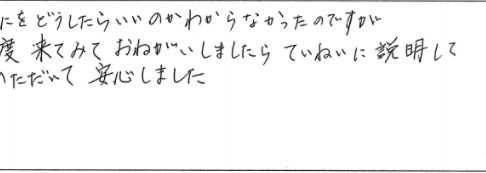 にをどうしたらいいのかわからなかったのですが
度 来てみて おねがいしましたら ていねいに 説明して
いただいて 安心しました